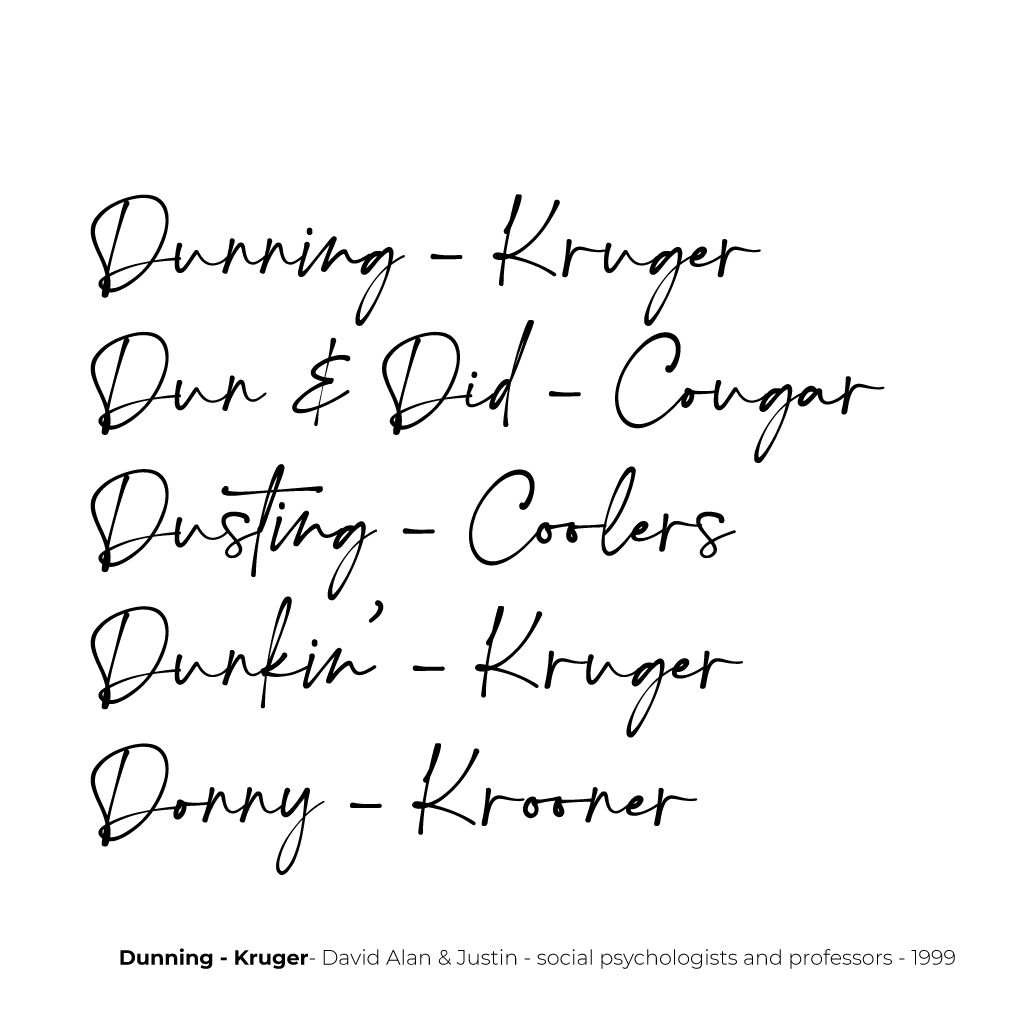 Dunning - Kruger
Dun & Did - Cougar
Dusting - Coolers
Dunkin’ - Kruger
Donny - Krooner
Dunning - Kruger- David Alan & Justin - social psychologists and professors - 1999